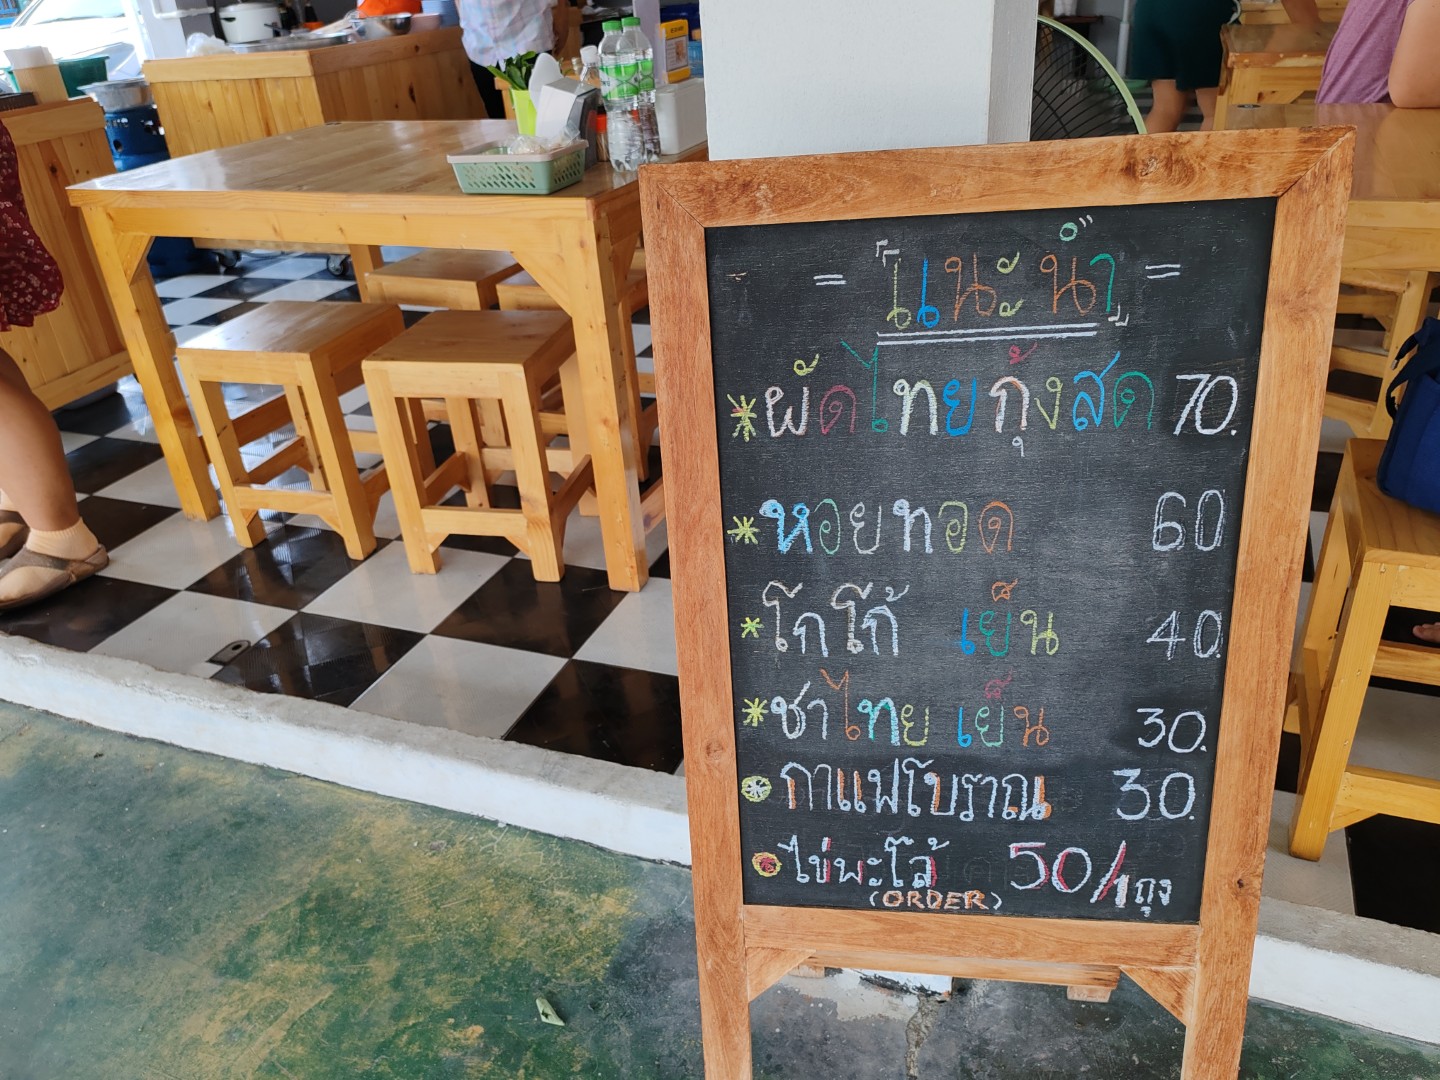 = 「แนะนำ」 =
* ผัดไทยกุ้งสด 70.
* หอยทอด 60
* โกโก้ เย็น 40.
* ชาไทย เย็น 30.
* กาแฟโบราณ 30.
ไข่พะโล้ 50/1ถุง
(ORDER)